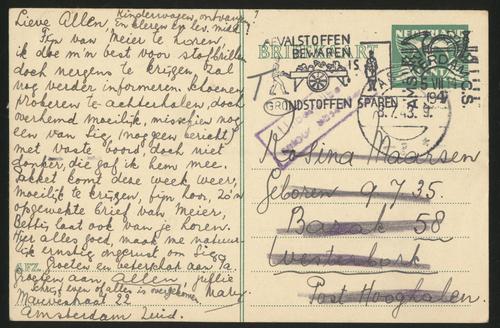 Kinderwagen, ontvangen?
Lieve Allen, En kleren op lev. midd.?
Fijn van Meier te horen,
ik doe m'n best voor stofbrillen
doch nergens te krijgen, zal
nog verder informeren, klompen
proberen te achterhalen, doch
overhemd moeilijk, misschien nog
een van Sig, nog geen bericht
met vaste boord, doch niet
donker, die gaf ik hem mee.
Packet komt deze week weer,
moeilijk te krijgen, fijn hoor, zo'n
opgewekte brief van Meier,
Betty laat ook van je horen.
Hier alles goed, maak me natuur-
lijk ernstig ongerust om Sig.
Groeten en beterschap aan Pa.
Groeten aan Allen, jullie
Mary.
schrijf even of alles is overgekomen
AFZ.
Mauvestraat 22
Amsterdam Zuid.
BRIEFKAART
NEDERLAND
AFVALSTOFFEN
BEWAREN
IS
GRONDSTOFFEN SPAREN
AMSTERDAM
8.7.43. 9
1943
Rosina Maarsen
Geboren 9 7 35.
Barak 58
Westerbork
Post Hooghalen